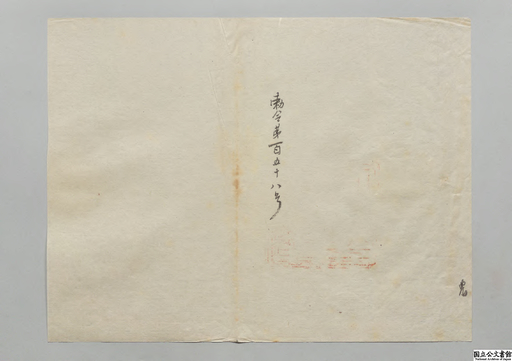 勅令第百五十八号
国立公文書館
National Archives of Japan